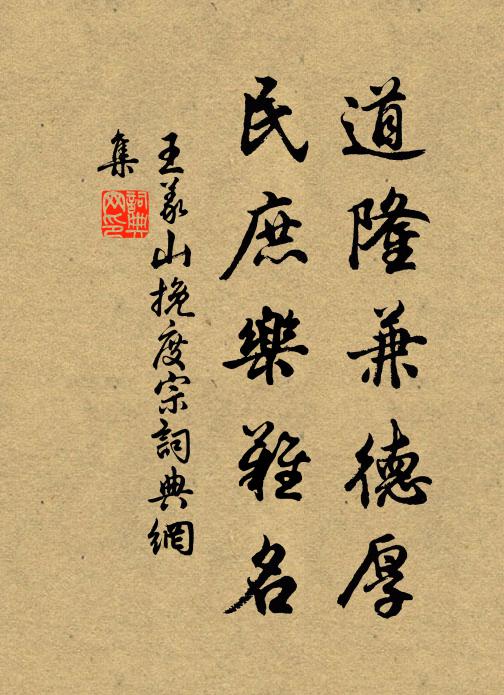 道隆兼德厚
民庶樂難名
王義山挽度宗詞典網
集
詞典
网印